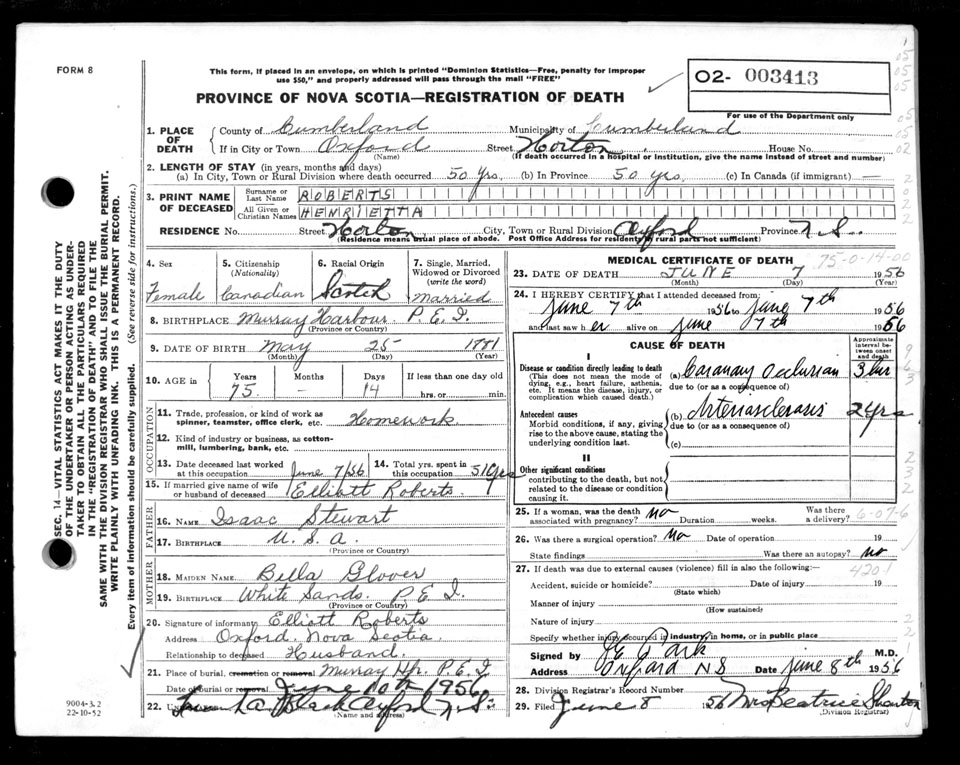 FORM 8
This form, if placed in an envelope, on which is printed "Dominion Statistics—Free, penalty for improper
use $50," and properly addressed will pass through the mail "FREE"
02- 003413
PROVINCE OF NOVA SCOTIA—REGISTRATION OF DEATH
For use of the Department only
1. PLACE OF DEATH
County of Cumberland Municipality of Cumberland
If in City or Town Oxford Street Horton House No.
(Name) (If death occurred in a hospital or institution, give the name instead of street and number)
2. LENGTH OF STAY (in years, months and days)
(a) In City, Town or Rural Division where death occurred 50 yrs. (b) In Province 50 yrs. (c) In Canada (if immigrant) —
3. PRINT NAME OF DECEASED
Surname or Last Name ROBERTS
All Given or Christian Names HENRIETTA
RESIDENCE No. Street Horton City, Town or Rural Division Oxford Province N.S.
(Residence means usual place of abode. Post Office Address for residents of rural parts not sufficient)
4. Sex Female
5. Citizenship (Nationality) Canadian
6. Racial Origin Scotch
7. Single, Married, Widowed or Divorced (write the word) Married
8. BIRTHPLACE Murray Harbour P.E.I.
(Province or Country)
9. DATE OF BIRTH May 25 1881
(Month) (Day) (Year)
10. AGE in Years 75 Months - Days 14 If less than one day old hrs. or min.
OCCUPATION
11. Trade, profession, or kind of work as spinner, teamster, office clerk, etc. Homework
12. Kind of industry or business, as cotton-mill, lumbering, bank, etc.
13. Date deceased last worked at this occupation June 7/56
14. Total yrs. spent in this occupation 51 yrs
15. If married give name of wife or husband of deceased Elliott Roberts
FATHER
16. NAME Isaac Stewart
17. BIRTHPLACE U.S.A.
(Province or Country)
MOTHER
18. MAIDEN NAME Bella Glover
19. BIRTHPLACE White Sands. P.E.I.
(Province or Country)
20. Signature of informant Elliott Roberts
Address Oxford. Nova Scotia
Relationship to deceased Husband
21. Place of burial, cremation or removal Murray Hr. P.E.I
Date of burial or removal June 10th 1956
22. A. Black Oxford N.S.
(Name and address)
MEDICAL CERTIFICATE OF DEATH 75-0-14-00
23. DATE OF DEATH JUNE 7 1956
(Month) (Day) (Year)
24. I HEREBY CERTIFY that I attended deceased from
June 7th 1956 to June 7th 1956
and last saw her alive on June 7th 1956
CAUSE OF DEATH
Approximate interval between onset and death
I
Disease or condition directly leading to death
(This does not mean the mode of dying, e.g., heart failure, asthenia, etc. It means the disease, injury, or complication which caused death.)
(a) Coronary Occlusion 3 hr
due to (or as a consequence of)
Antecedent causes
Morbid conditions, if any, giving rise to the above cause, stating the underlying condition last.
(b) Arteriosclerosis 2 yrs
due to (or as a consequence of)
(c)
II
Other significant conditions
contributing to the death, but not related to the disease or condition causing it.
25. If a woman, was the death associated with pregnancy? No Duration weeks. Was there a delivery? 6-07-6
26. Was there a surgical operation? No Date of operation 19
State findings Was there an autopsy? No
27. If death was due to external causes (violence) fill in also the following:— 4201
Accident, suicide or homicide? Date of injury 19
(State which)
Manner of injury
(How sustained)
Nature of injury
Specify whether injury occurred in industry, in home, or in public place
Signed by Park M.D.
Address Oxford NS Date June 8th 1956
28. Division Registrar's Record Number
29. Filed June 8 1956 Mrs Beatrice
(Division Registrar)
9004-3.2
22-10-52
SEC. 14—VITAL STATISTICS ACT MAKES IT THE DUTY
OF THE UNDERTAKER OR PERSON ACTING AS UNDER-
TAKER TO OBTAIN ALL THE PARTICULARS REQUIRED
IN THE "REGISTRATION OF DEATH" AND TO FILE THE
SAME WITH THE DIVISION REGISTRAR WHO SHALL ISSUE THE BURIAL PERMIT.
WRITE PLAINLY WITH UNFADING INK. THIS IS A PERMANENT RECORD.
Every item of information should be carefully supplied. (See reverse side for instructions.)